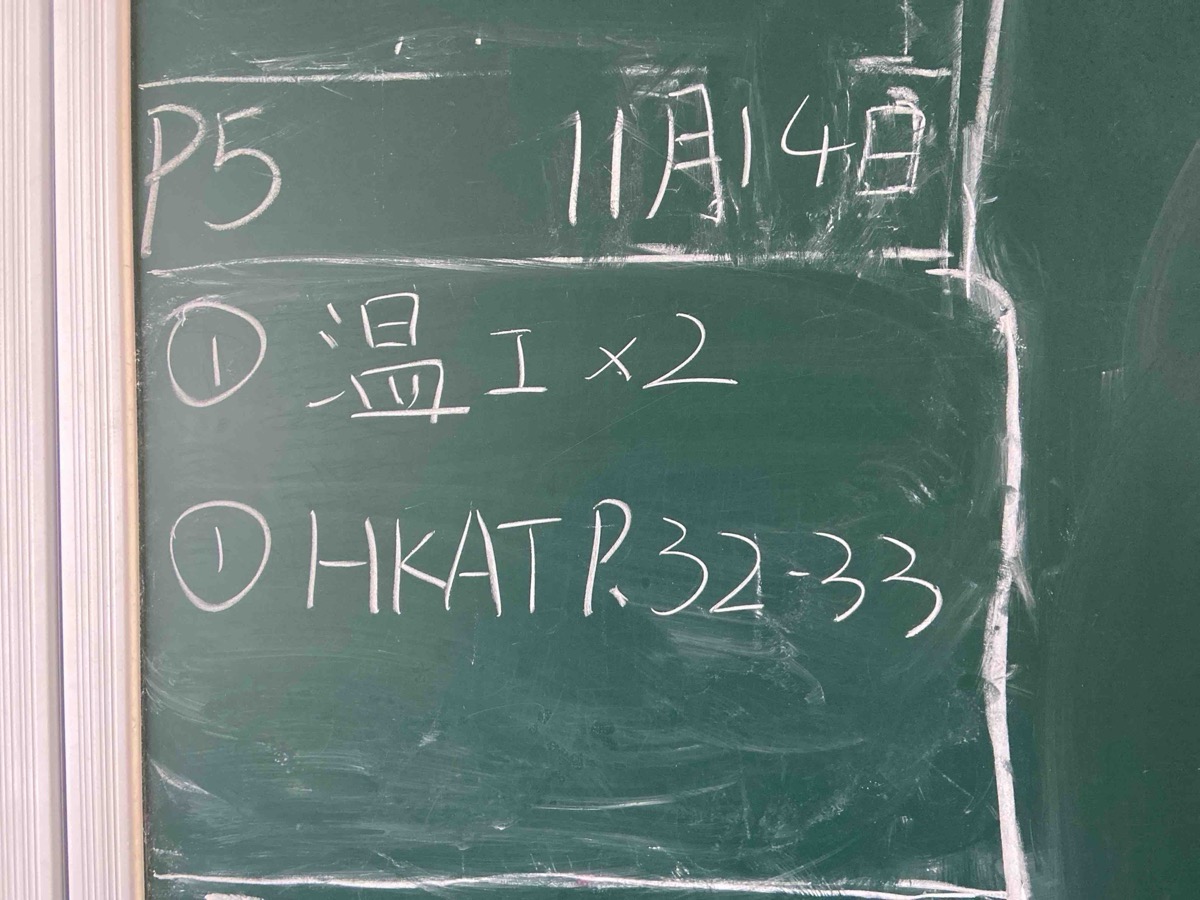 P5 11月14日
① 温工×2
① HKAT P.32-33